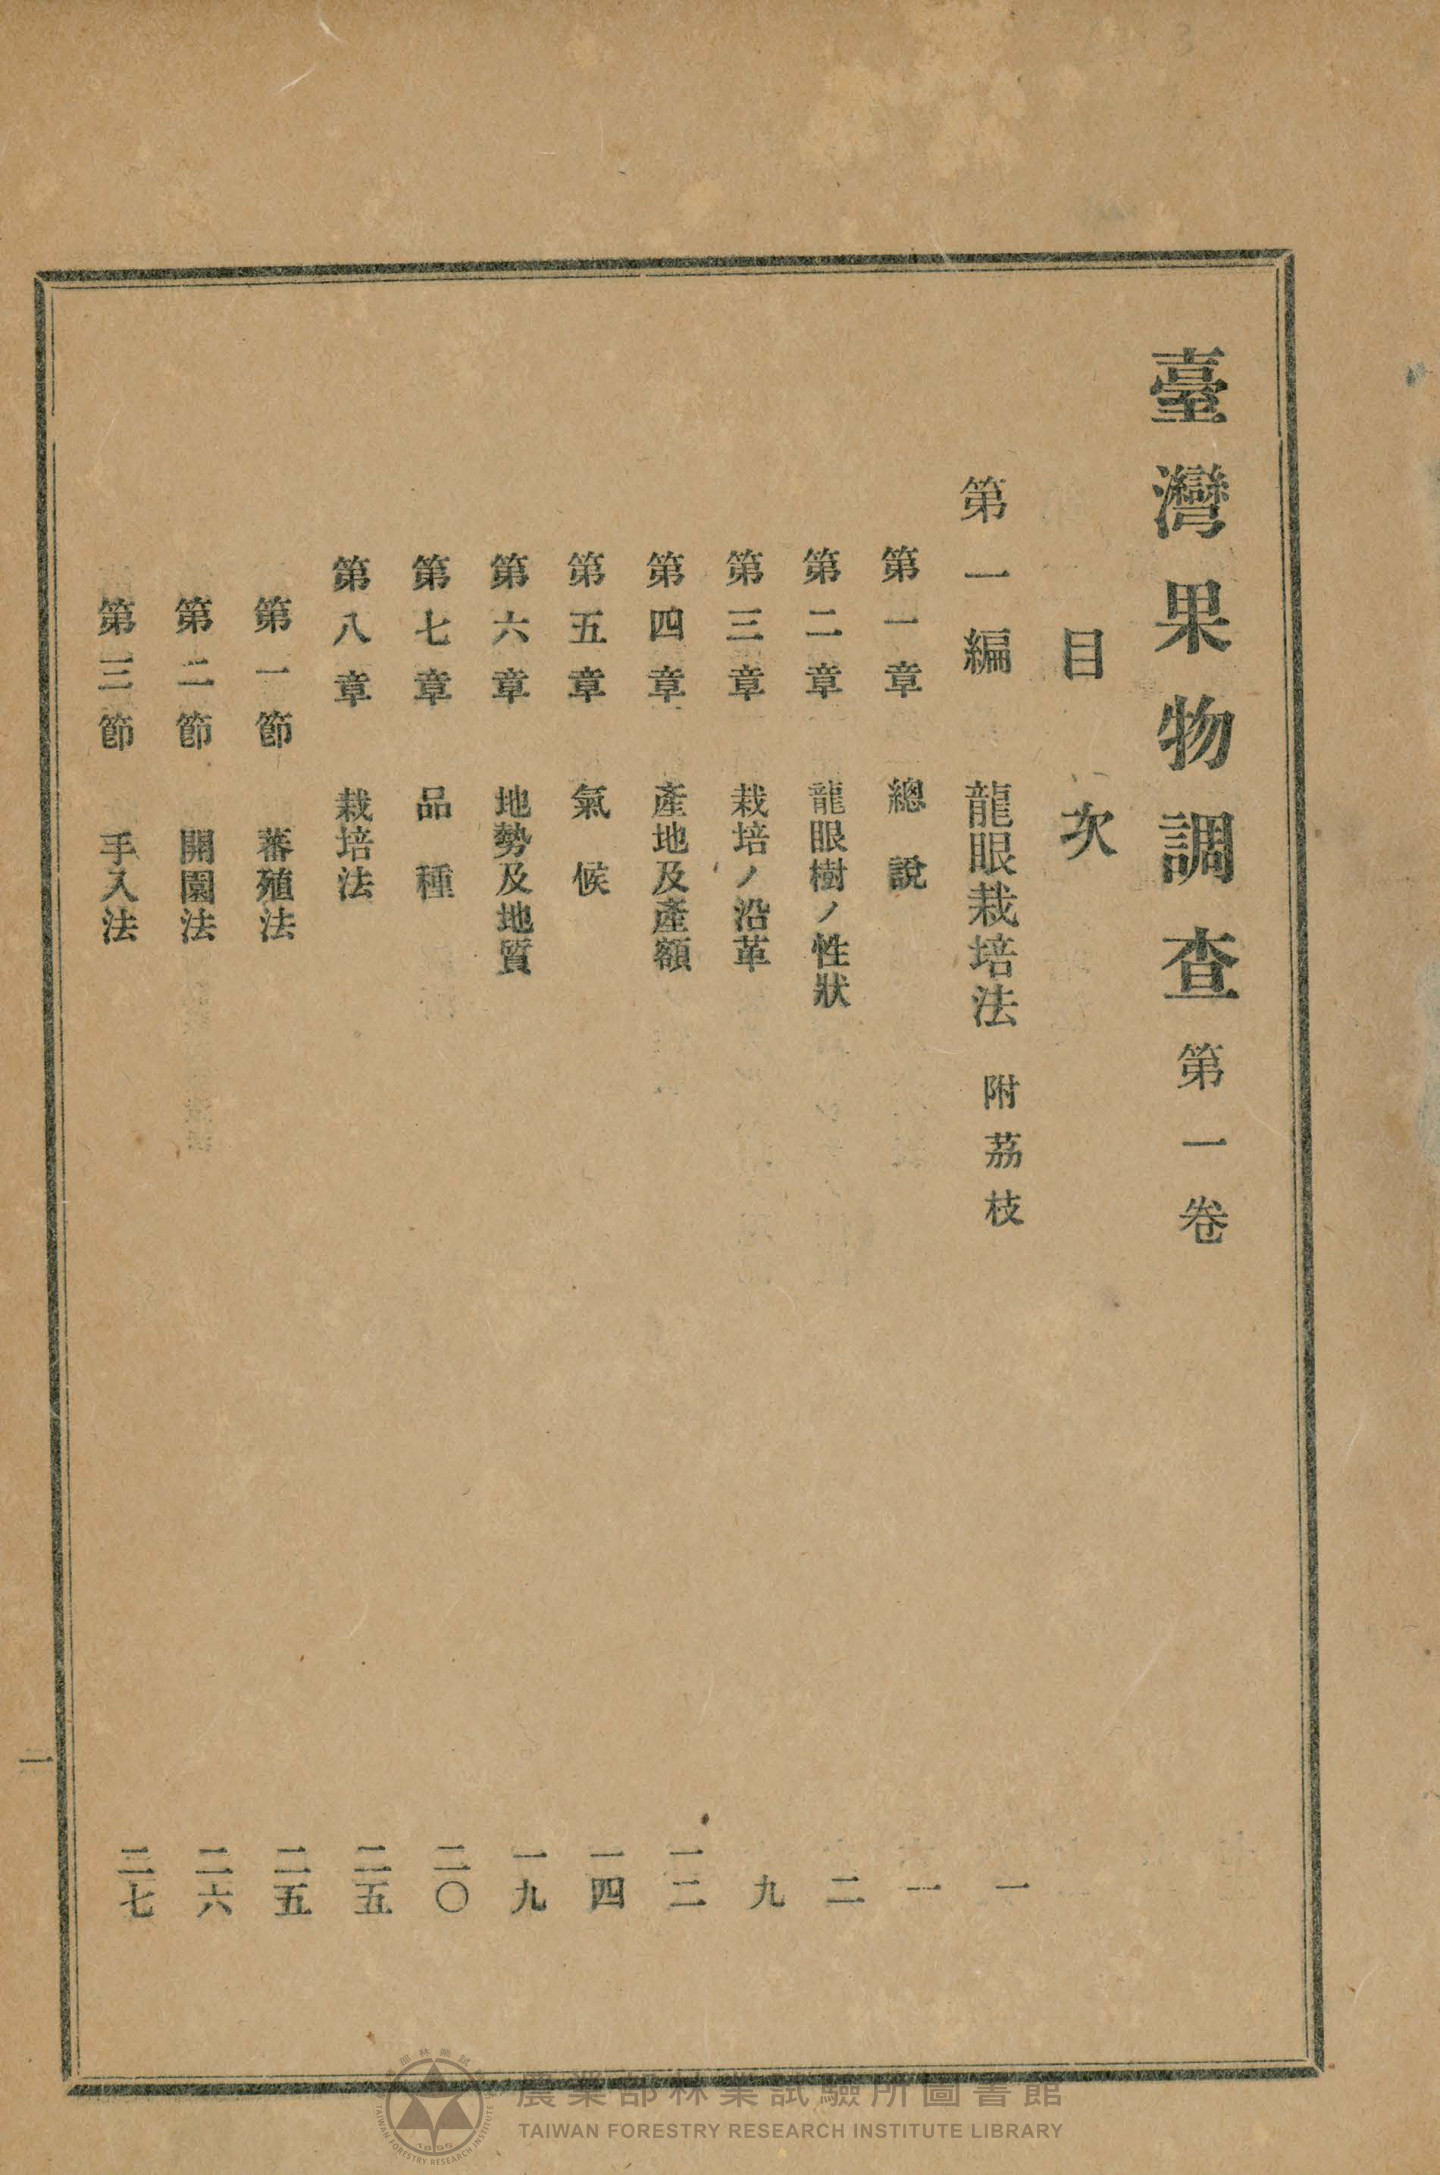 臺灣果物調查第一卷
目次
第一編 龍眼栽培法 附荔枝 一
第一章 總說 一
第二章 龍眼樹ノ性狀 二
第三章 栽培ノ沿革 九
第四章 產地及產額 一二
第五章 氣候 一四
第六章 地勢及地質 一九
第七章 品種 二〇
第八章 栽培法 二五
第一節 蕃殖法 二五
第二節 開園法 二六
第三節 手入法 二七
一
農業部林業試驗所圖書館
TAIWAN FORESTRY RESEARCH INSTITUTE LIBRARY
TAIWAN FORESTRY RESEARCH INSTITUTE
1896